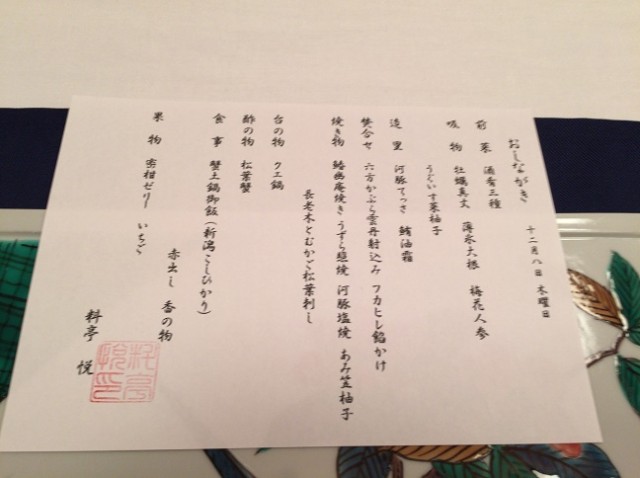 おしながき
十二月八日 木曜日
前菜 酒肴三種
吸物 牡蠣真丈 薄氷大根 梅花人参
うぐいす菜柚子
造里 河豚てっさ 鮪油霜
焚合せ 六方かぶら雲丹射込み フカヒレ餡かけ
焼き物 鰆幽庵焼き うずら照焼 河豚塩焼 あみ笠柚子
長老木とむかご松葉刺し
台の物 クエ鍋
酢の物 松葉蟹
食事 蟹土鍋御飯(新潟こしひかり)
赤出し 香の物
果物 蜜柑ゼリー いちご
料亭 悦